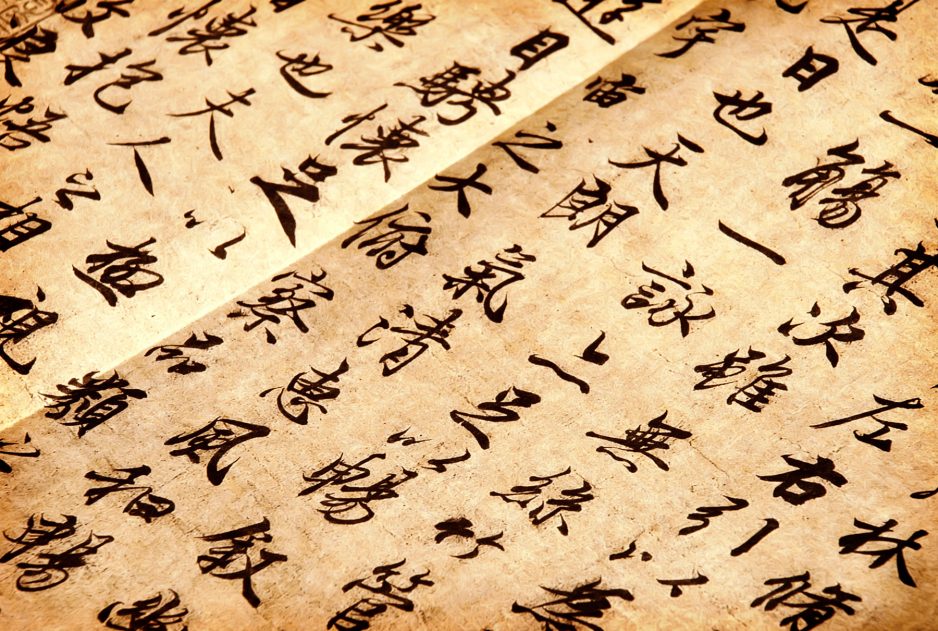 林脩
左右引以為
其次雖無絲竹管
觴一詠亦足以暢敘幽
是日也天朗氣清惠風和暢
宇宙之大俯察品類之
遊目騁懷足以極視
樂也夫人之相
懷抱悟